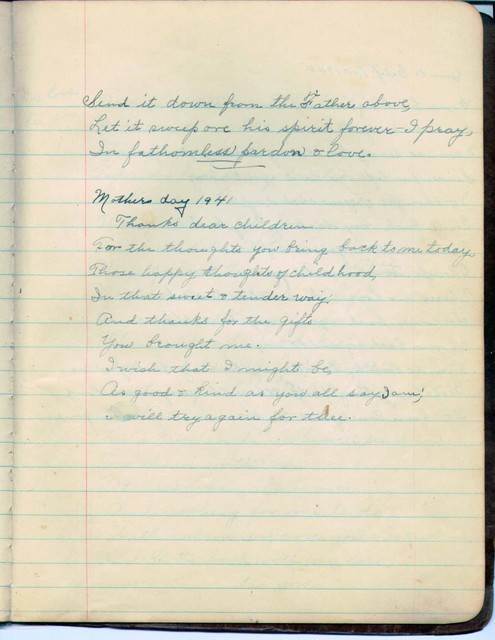 Send it down from the Father above,
Let it sweep ore his spirit forever - I pray,
In fathomless pardon & love.
Mothers day 1941
Thanks dear children
For the thoughts you bring back to me today,
Those happy thoughts of childhood,
In that sweet & tender way,
And thanks for the gifts
You brought me.
I wish that I might be,
As good & kind as you all say I am;
I will try again for thee.